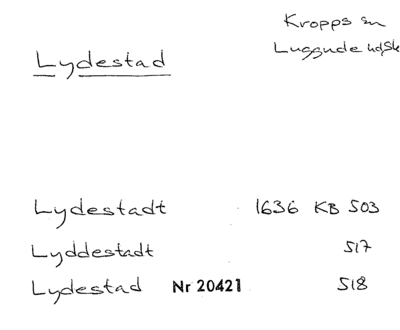 Kropps sn
Lydestad
Luggude hdsk
Lydestadt 1636 KB 503
Lyddestadt 517
Lydestad Nr 20421 518